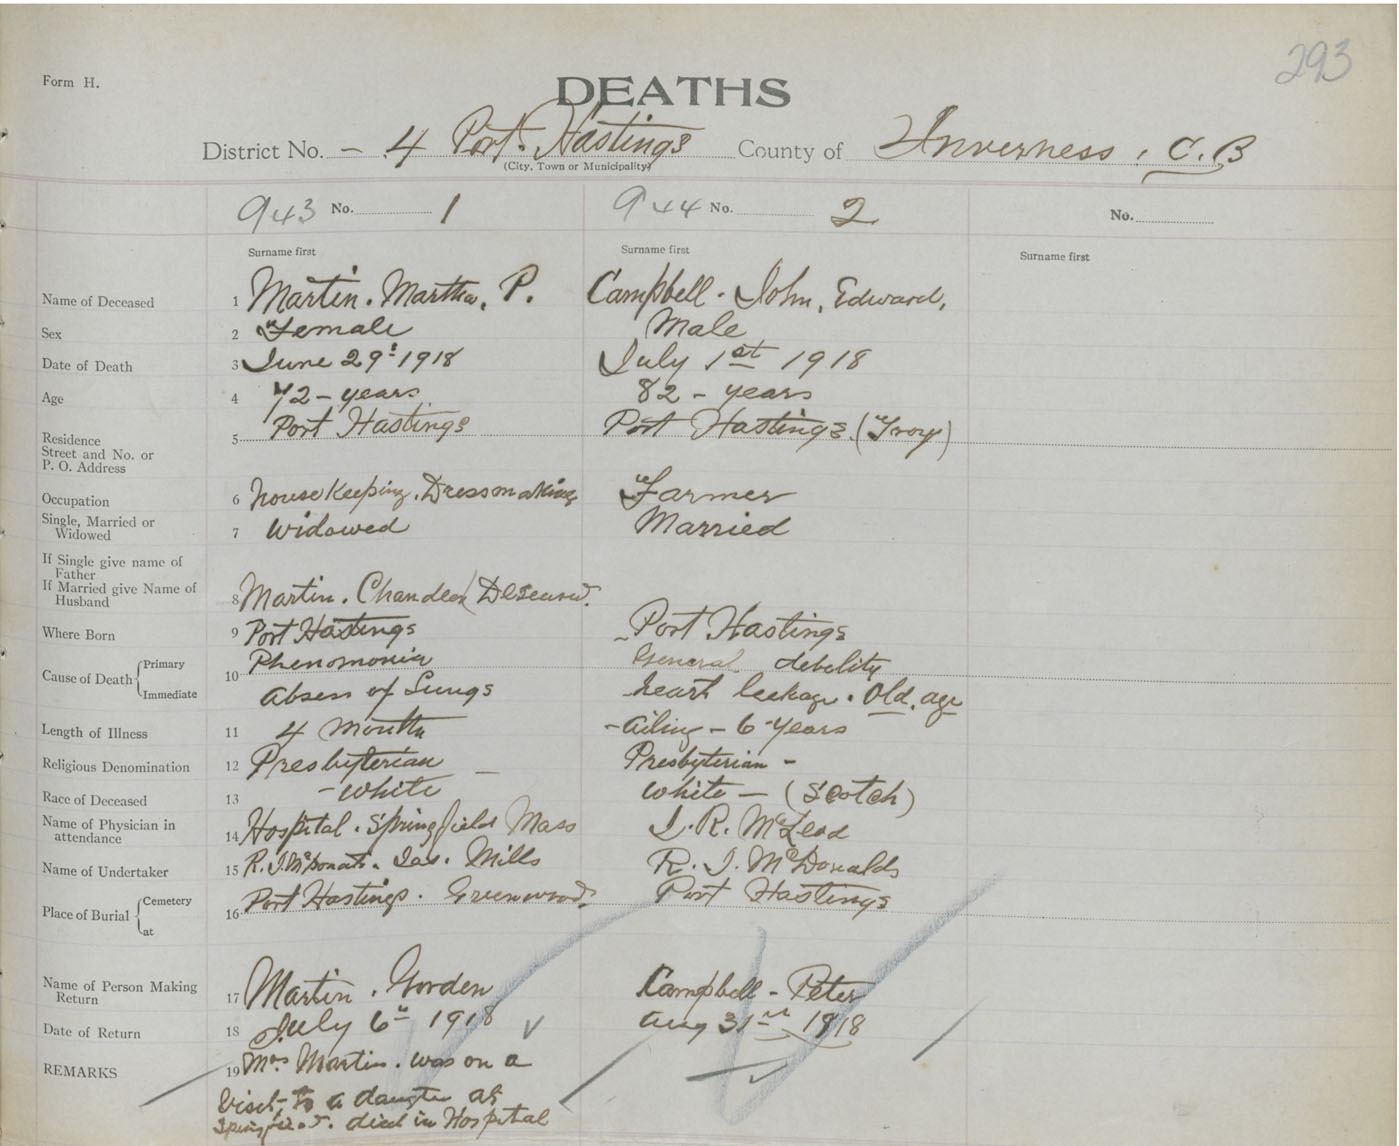 293
Form H.
DEATHS
District No. - 4 Port Hastings County of Inverness, C.B
(City, Town or Municipality)
943 No. 1 944 No. 2 No.
Surname first Surname first Surname first
Name of Deceased 1 Martin. Martha, P. Campbell. John, Edward,
Sex 2 Female Male
Date of Death 3 June 29: 1918 July 1st 1918
Age 4 72 - years 82 - years
Residence
Street and No. or
P. O. Address 5 Port Hastings Port Hastings (Troy)
Occupation 6 housekeeping. Dressmaking Farmer
Single, Married or
Widowed 7 Widowed Married
If Single give name of
Father
If Married give Name of
Husband 8 Martin. (
Where Born 9 Port Hastings Port Hastings
Cause of Death Primary 10 Phenomonia General debelity
Immediate Absess of Lungs heart leakage. Old. age
Length of Illness 11 4 months - ailing - 6 years
Religious Denomination 12 Presbyterian - Presbyterian -
Race of Deceased 13 - white white - (Scotch)
Name of Physician in
attendance 14 Hospital. Springfield Mass R. McLeod
Name of Undertaker 15 Jas. Mills R. J. McDonald
Place of Burial Cemetery 16 Port Hastings. Greenwood. Port Hastings
at
Name of Person Making
Return 17 Martin. Gorden Campbell - Peter
Date of Return 18 July 6th 1918 Aug 31st 1918
REMARKS 19 Mrs Martin. was on a
visit to a daughter at
died in Hospital